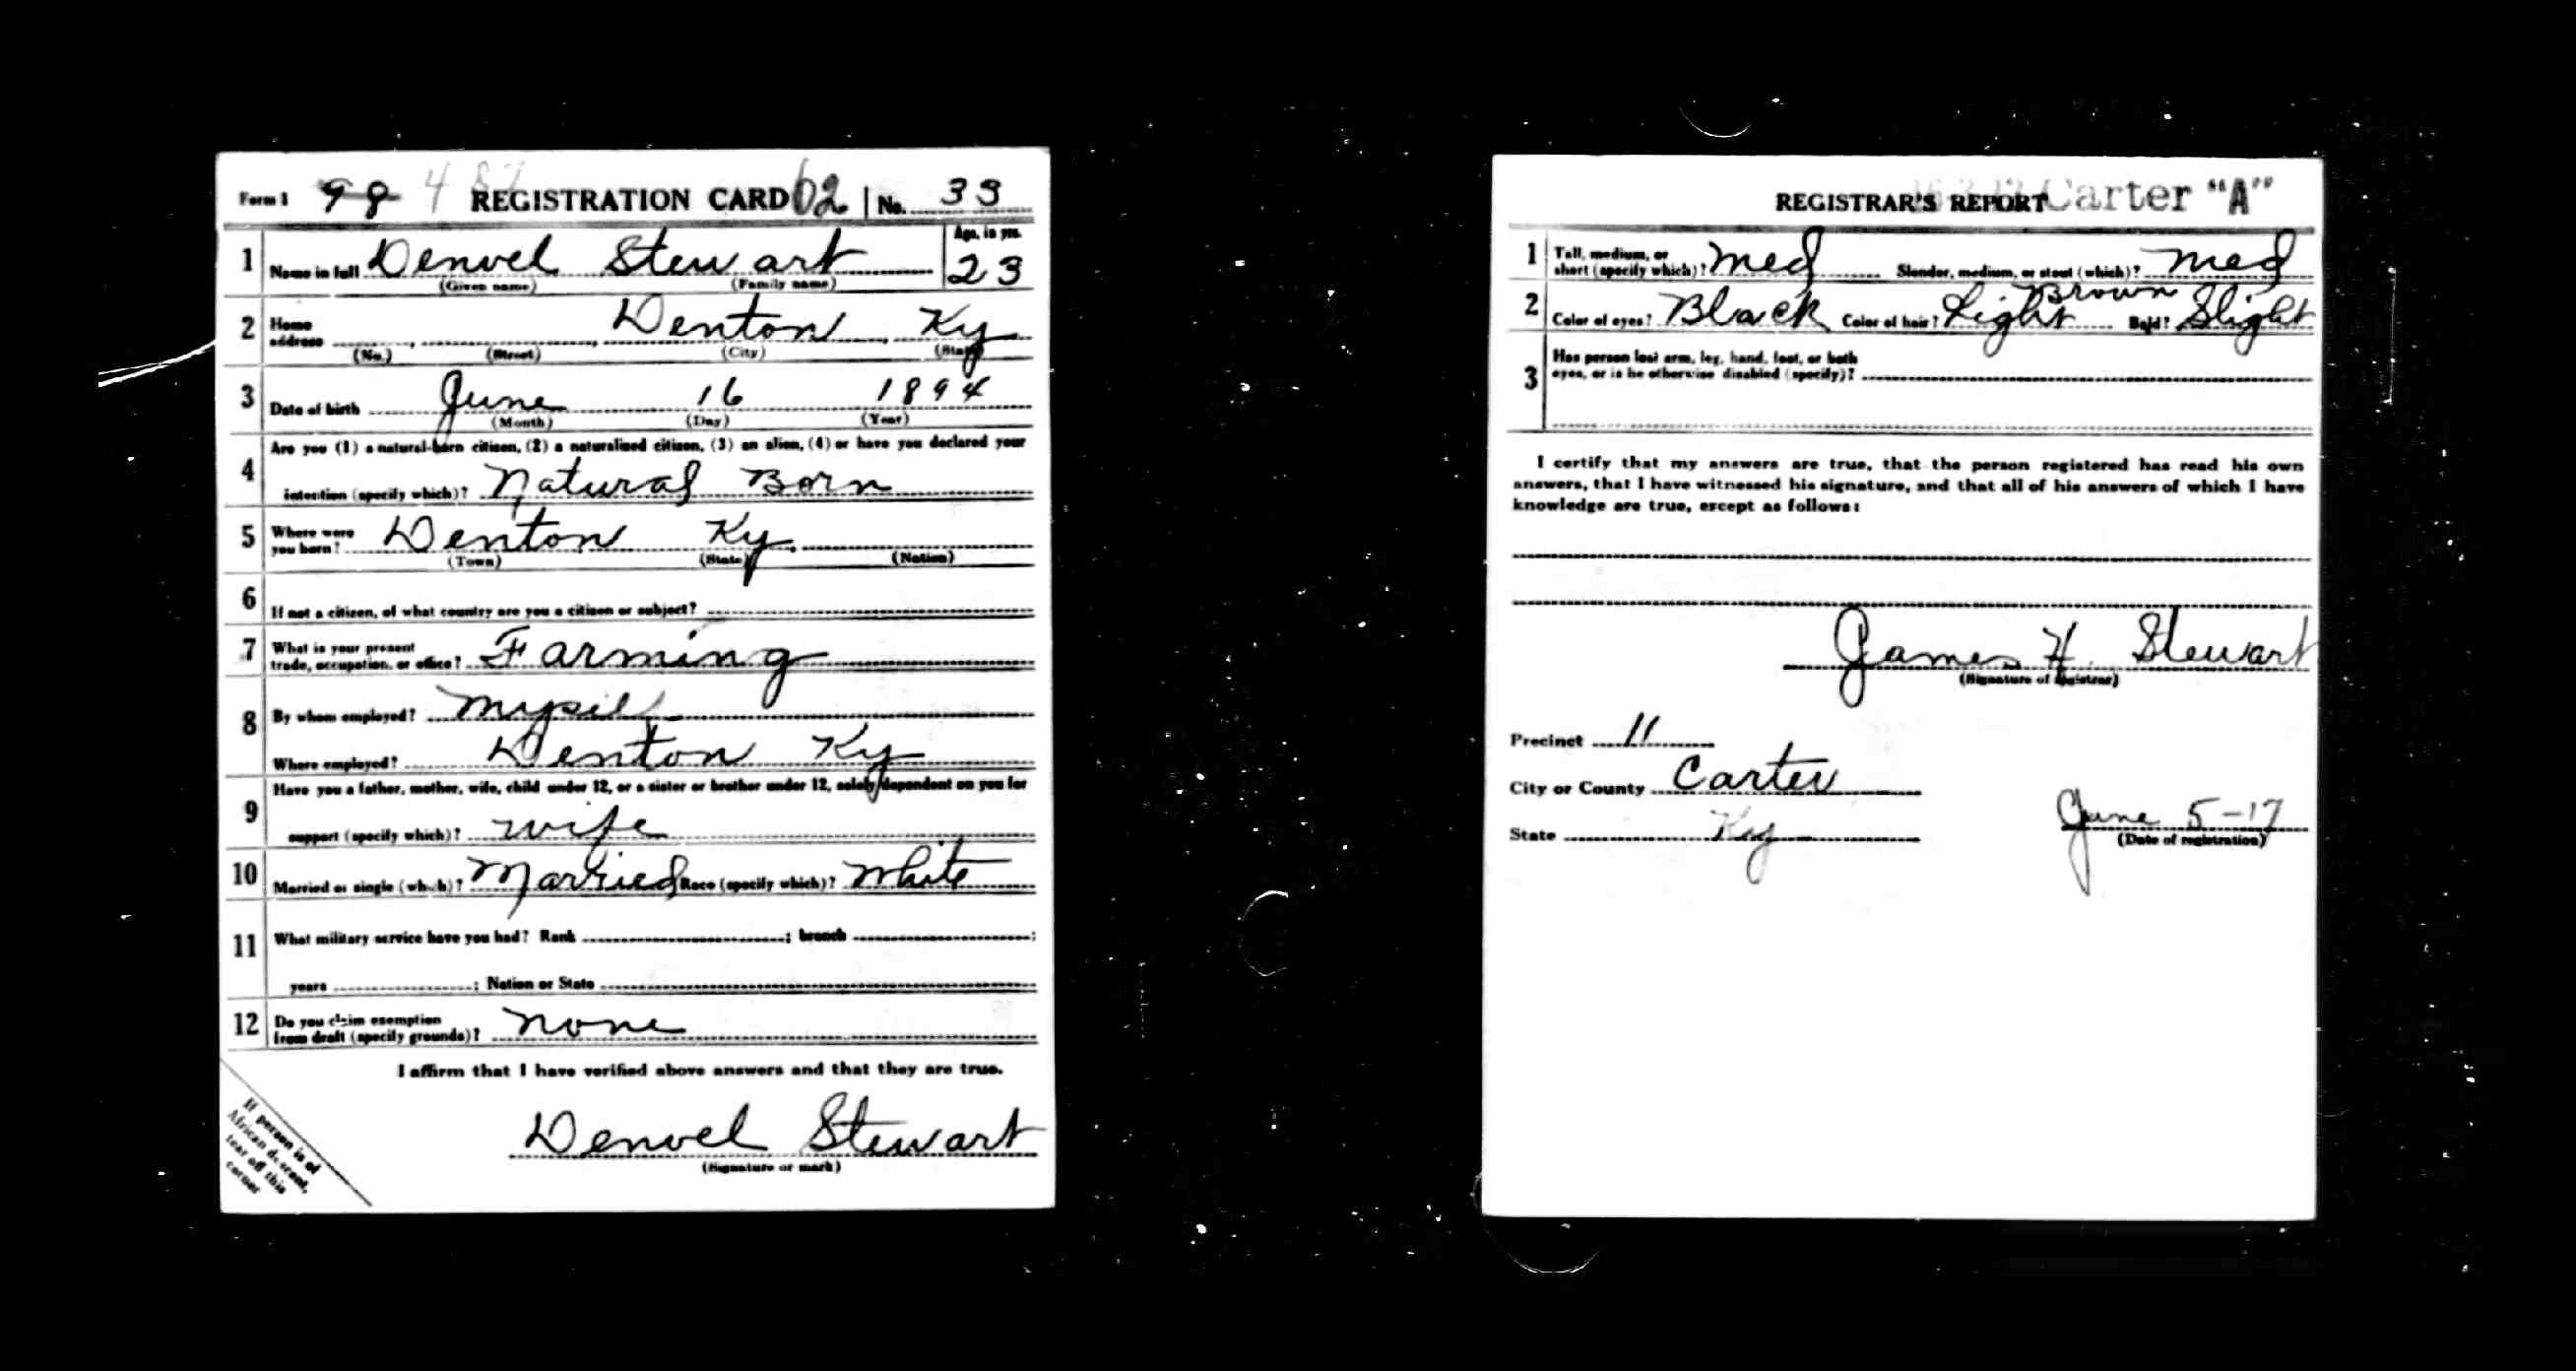 Form 1 98 REGISTRATION CARD 62 No. 33
1 Name in full Denvel Stewart Age, in yrs. 23
(Given name) (Family name)
2 Home address Denton, Ky
(No.) (Street) (City) (State)
3 Date of birth June 16 1894
(Month) (Day) (Year)
4 Are you (1) a natural-born citizen, (2) a naturalized citizen, (3) an alien, (4) or have you declared your
intention (specify which)? Natural Born
5 Where were you born? Denton Ky.
(Town) (State) (Nation)
6 If not a citizen, of what country are you a citizen or subject?
7 What is your present
trade, occupation, or office? Farming
8 By whom employed? Myself
Where employed? Denton Ky
9 Have you a father, mother, wife, child under 12, or a sister or brother under 12, solely dependent on you for
support (specify which)? wife
10 Married or single (which)? Married Race (specify which)? White
11 What military service have you had? Rank ; branch ;
years ; Nation or State
12 Do you claim exemption
from draft (specify grounds)? none
I affirm that I have verified above answers and that they are true.
Denvel Stewart
(Signature or mark)
If person is of
African descent,
tear off this
corner
REGISTRAR'S REPORT Carter "A"
1 Tall, medium, or
short (specify which)? med Slender, medium, or stout (which)? med
2 Color of eyes? Black Color of hair? Light Brown Bald? Slight
3 Has person lost arm, leg, hand, foot, or both
eyes, or is he otherwise disabled (specify)?
I certify that my answers are true, that the person registered has read his own
answers, that I have witnessed his signature, and that all of his answers of which I have
knowledge are true, except as follows:
James H. Stewart
(Signature of registrar)
Precinct 11
City or County Carter
State Ky
June 5-17
(Date of registration)